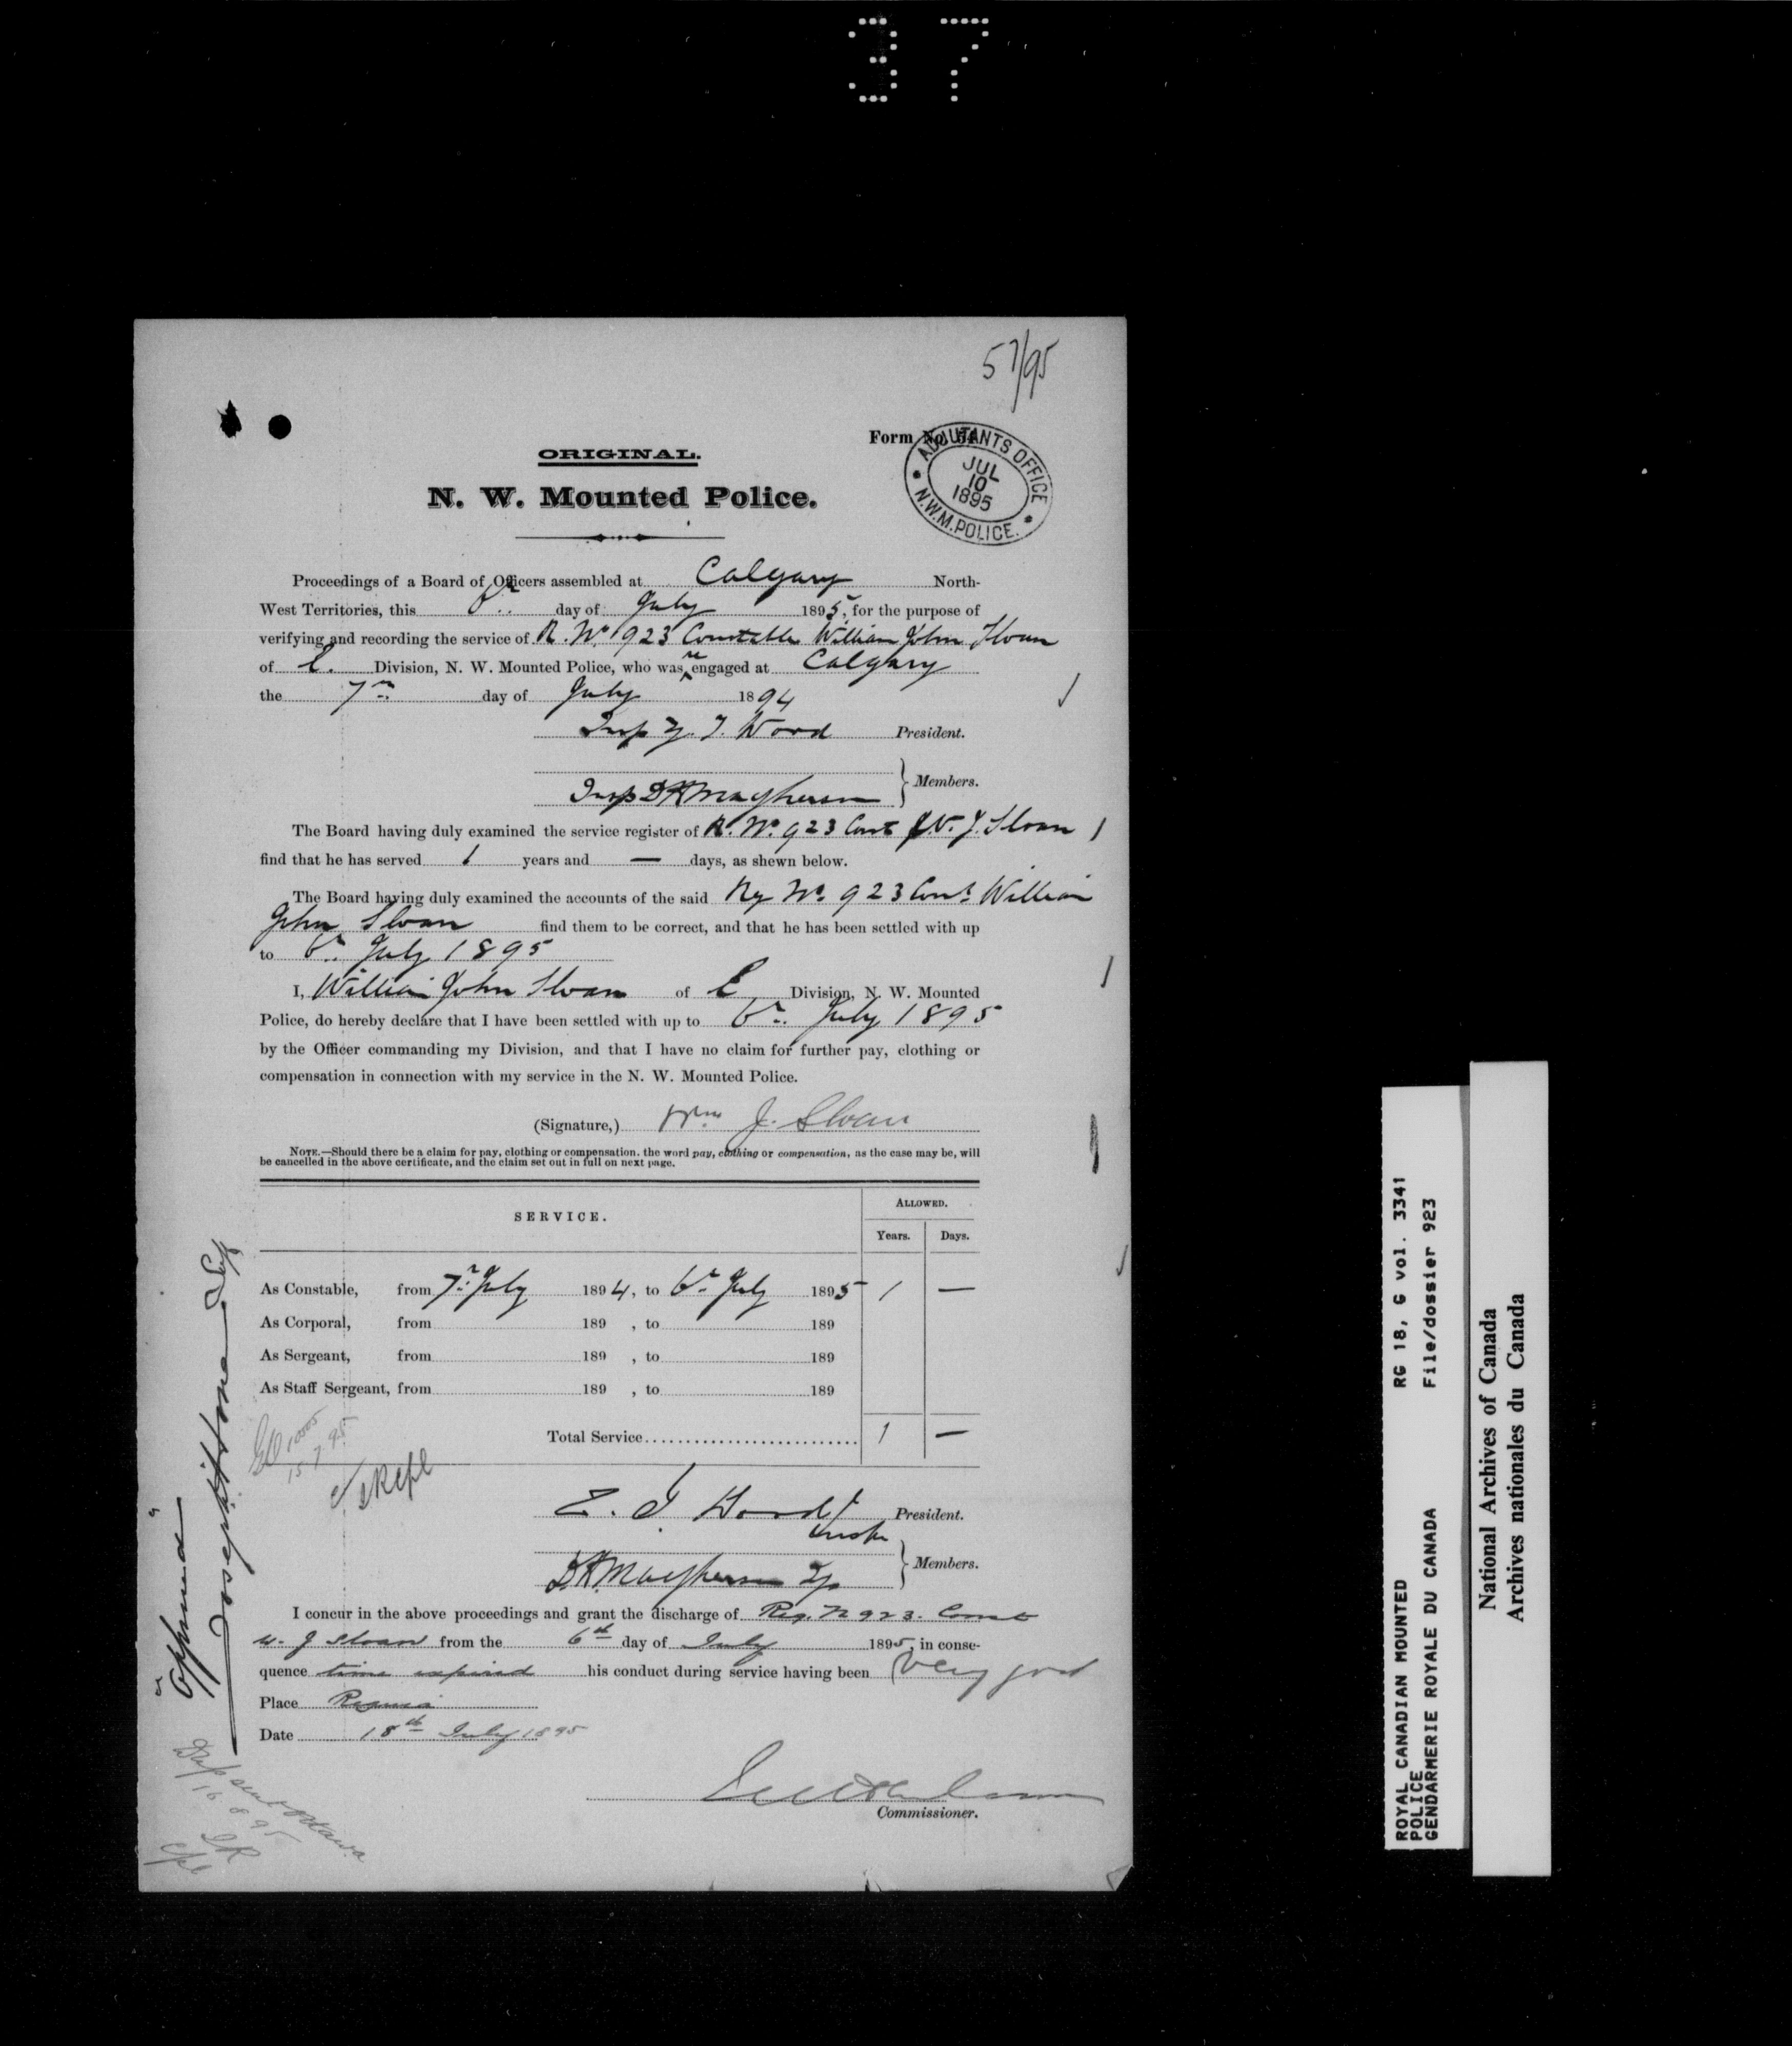 37
57/95
Form No.
ADJUTANTS OFFICE
JUL
10
1895
N.W.M.POLICE.
ORIGINAL.
N. W. Mounted Police.
Proceedings of a Board of Officers assembled at Calgary North-
West Territories, this 6th day of July 1895, for the purpose of
verifying and recording the service of R. No. 923 Constable William John Sloan
of E. Division, N. W. Mounted Police, who was re engaged at Calgary
the 7th day of July 1894
Insp Z. T. Wood President.
Members.
Insp D H Macpherson
The Board having duly examined the service register of R. No. 923 Const W. J. Sloan
find that he has served 1 years and — days, as shewn below.
The Board having duly examined the accounts of the said Reg No. 923 Const William
John Sloan find them to be correct, and that he has been settled with up
to 6th July 1895
I, William John Sloan of E Division, N. W. Mounted
Police, do hereby declare that I have been settled with up to 6th July 1895
by the Officer commanding my Division, and that I have no claim for further pay, clothing or
compensation in connection with my service in the N. W. Mounted Police.
(Signature,) Wm J. Sloan
NOTE.—Should there be a claim for pay, clothing or compensation, the word pay, clothing or compensation, as the case may be, will
be cancelled in the above certificate, and the claim set out in full on next page.
SERVICE.
ALLOWED.
Years. Days.
As Constable, from 7th July 1894, to 6th July 1895 1 —
As Corporal, from 189 , to 189
As Sergeant, from 189 , to 189
As Staff Sergeant, from 189 , to 189
Total Service 1 —
15 7 95
Z. T. Wood President.
Insp
Members.
D H Macpherson Insp
I concur in the above proceedings and grant the discharge of Reg. No 923. Const
W. J Sloan from the 6th day of July 1895, in conse-
quence time expired his conduct during service having been Very good
Place Regina
Date 18th July 1895
Commissioner.
"Approved"
Dup sent Ottawa
16 8 95
Cpl
ROYAL CANADIAN MOUNTED RG 18, G vol. 3341
POLICE
GENDARMERIE ROYALE DU CANADA File/dossier 923
National Archives of Canada
Archives nationales du Canada